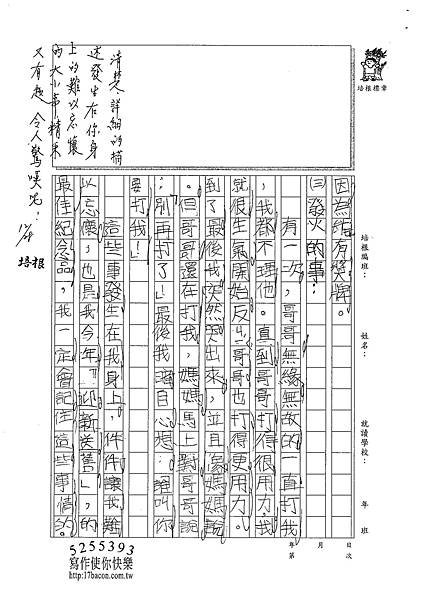 培根標章
培根班：
姓名：
就讀學校：
年 班
年 月 日
第 次
因為他有獎牌。
(三)發火的事：
有一次，哥哥無緣無故的一直打我
，我都不理他。直到哥哥打得很用力，我
就很生氣開始反攻，哥哥也打得更用力。
到了最後我突然哭出來，並且像媽媽說
。但哥哥還在打我，媽媽馬上對哥哥說
：「別再打了！」最後我暗自心想：「誰叫你
要打我！」
這些事發生在我身上，件件讓我難
以忘懷，也是我今年「迎新送舊」的
最佳紀念品，我一定會記住這些事情的。
清楚、詳細的描
述發生在你身
上的難以忘懷
的大小事，精采
又有趣，令人驚嘆呢！
培根
5255393
寫作使你快樂
http://17bacon.com.tw/